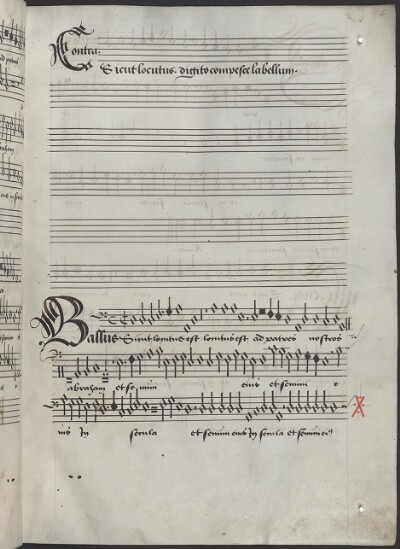 Contra.
Sicut locutus. digito compesce labellum.
Bassus Sicut locutus est locutus est ad patres nostros
abraham et semini eius et semini e
ius In secula et semini eius In secula et semini ei9